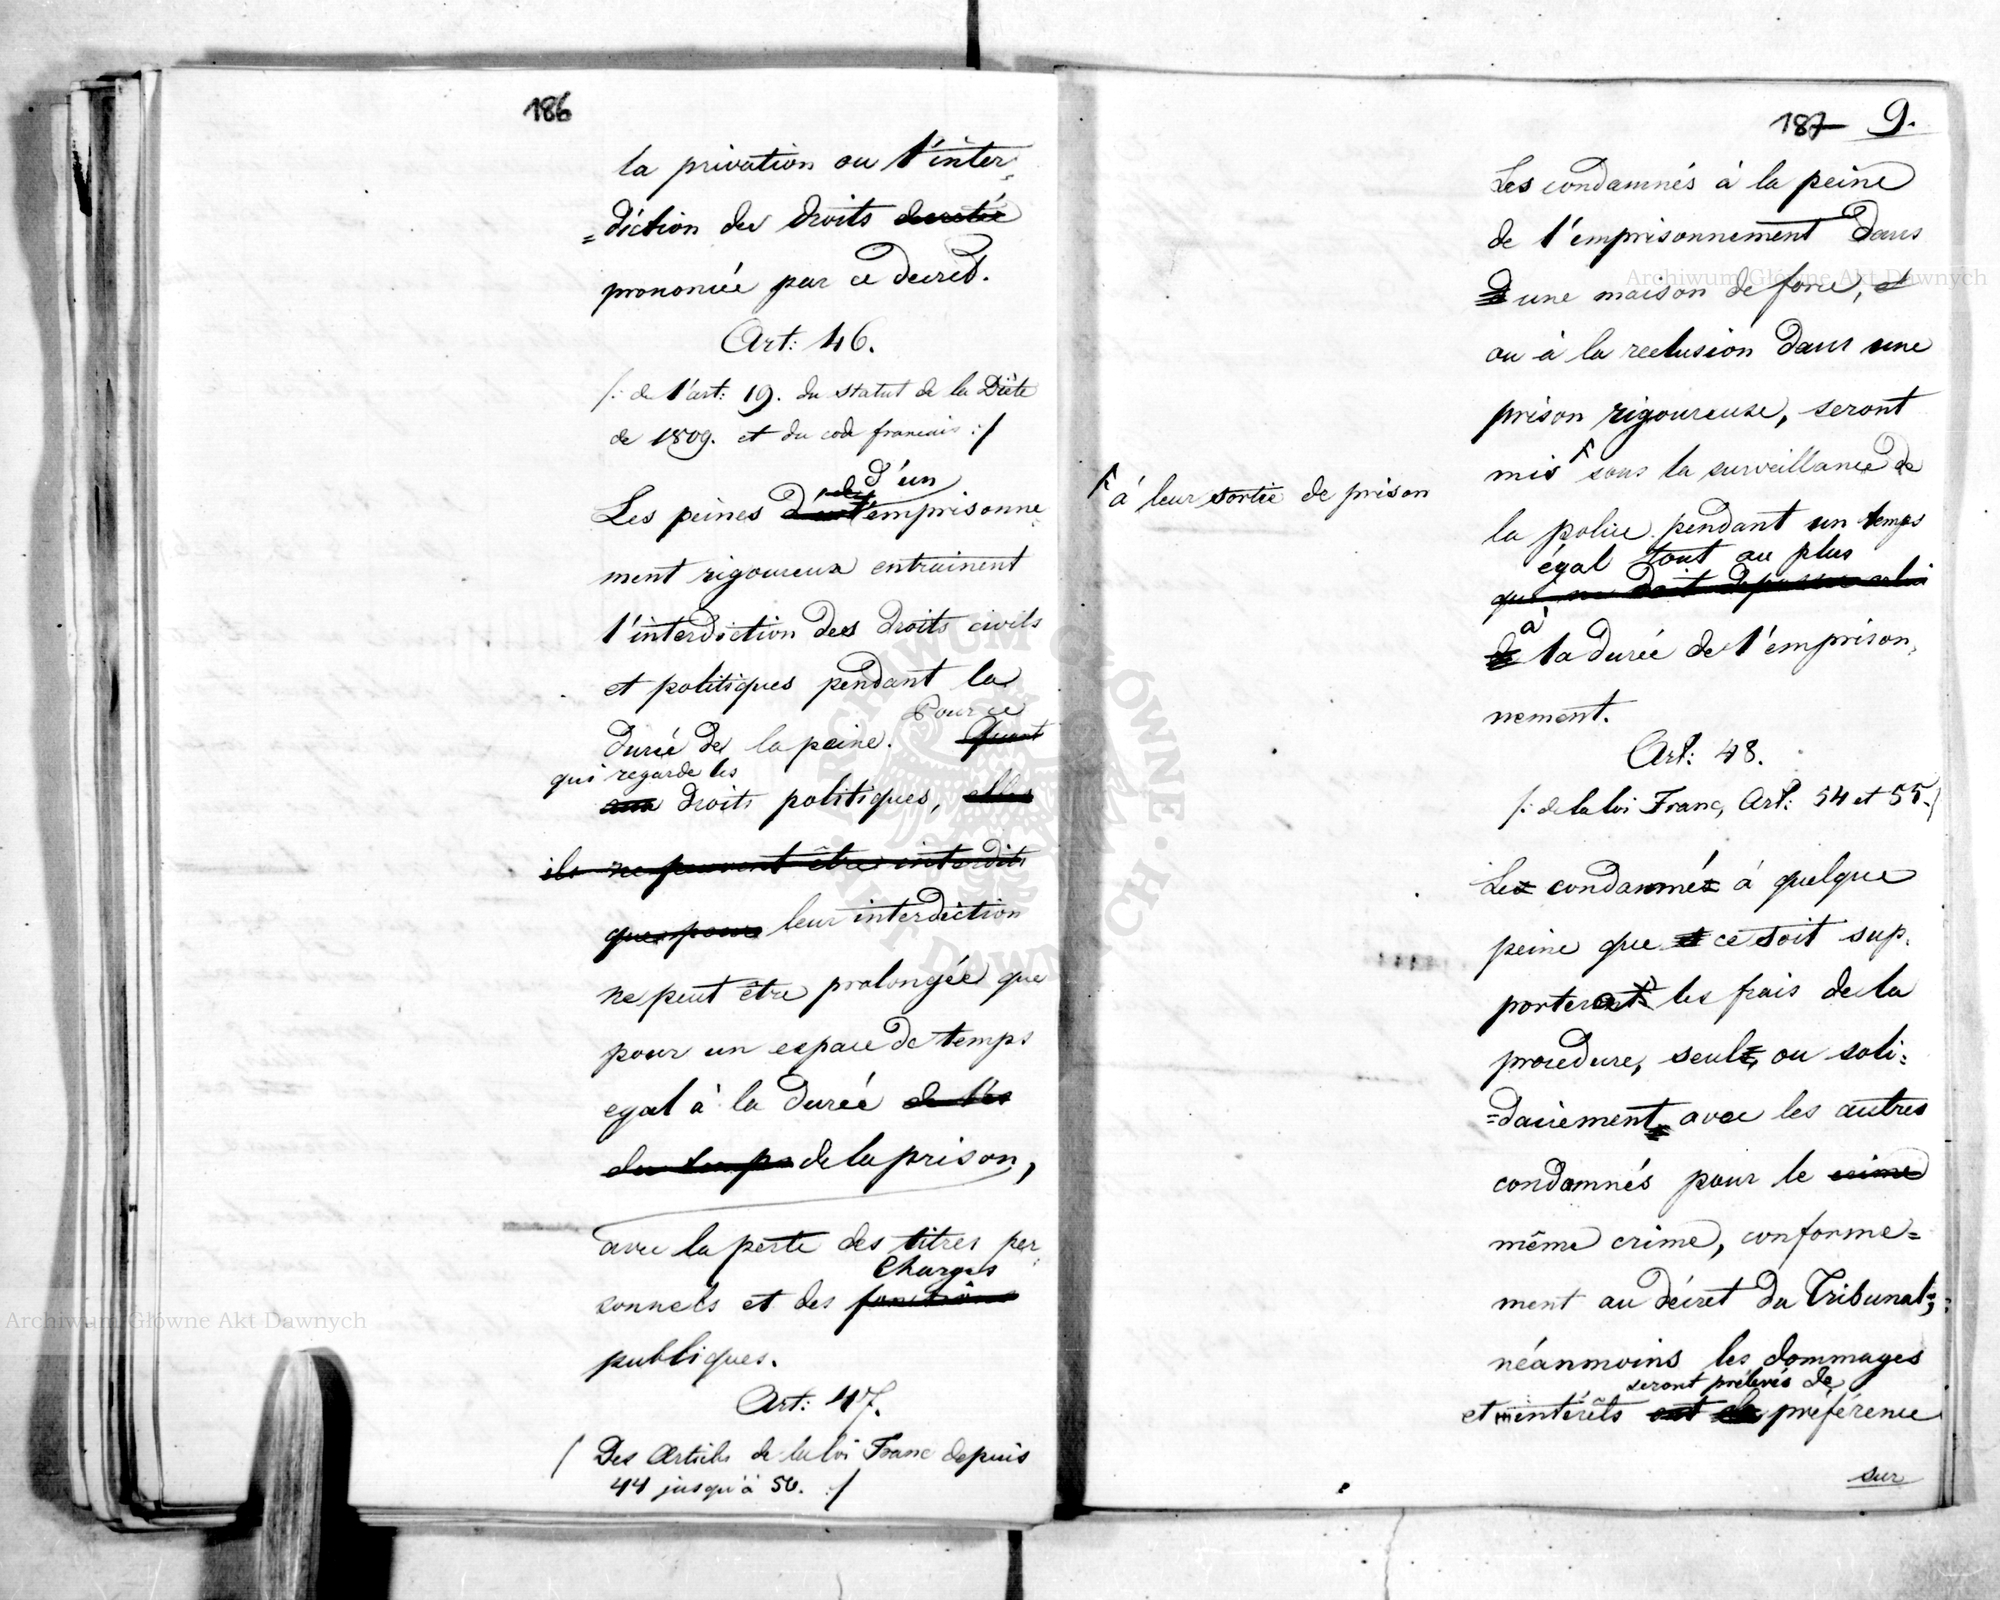 186
la privation ou l'inter-
=diction des droits decretée
prononcée par ce decret.
Art: 46.
/: de l'art: 19. du statut de la Diète
de 1809. et du code francais :/
d'un
Les peines l'emprisonne-
ment rigoureux entrainent
l'interdiction des droits civils
et politiques pendant la
Pour ce
durée de la peine. Quant
qui regarde les
aux droits politiques, elles
ils ne peuvent être interdits
que pour leur interdiction
ne peut être prolongée que
pour un espace de temps
egal à la durée de les
du temps de la prison,
avec la perte des titres per-
Charges
sonnels et des fonctions
publiques.
Art: 47.
/ Des Articles de la loi Franc depuis
44 jusqu'à 50. :/
187 9.
Les condamnés à la peine
de l'emprisonnement dans
d'une maison de force, et
ou à la reclusion dans une
prison rigoureuse, seront
mis sous la surveillance de
à leur sortie de prison
la police pendant un temps
égal tout au plus
qui ne doit depasser celui
à
de la durée de l'emprison-
nement.
Art: 48.
/: de la loi Franc, Art: 54 et 55. /
Les condamnés à quelque
peine que ce soit sup-
porteront les frais de la
procedure, seuls, ou soli=
=dairement avec les autres
condamnés pour le crime
même crime, conforme=
ment au décret du Tribunal;
néanmoins les dommages
seront prélevés de
et intérêts ont la préférence
sur
Archiwum Główne Akt Dawnych
Archiwum Główne Akt Dawnych
ARCHIWUM GŁÓWNE AKT DAWNYCH